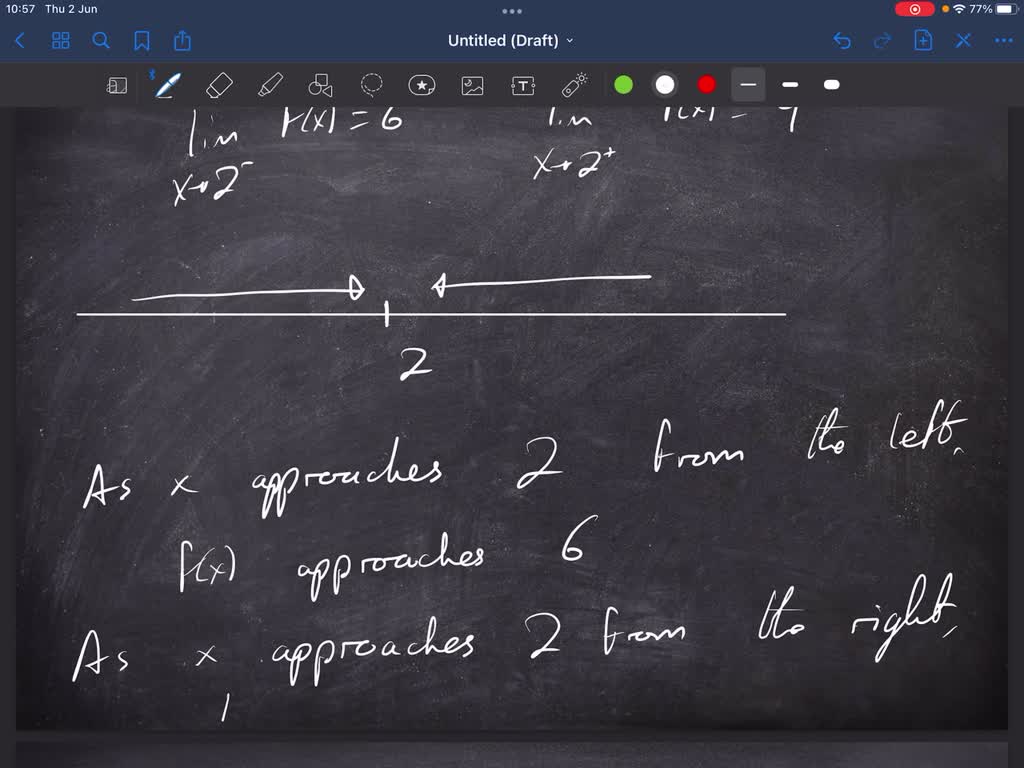 10:57 Thu 2 Jun
77%
Untitled (Draft)
T
lim f(x) = 6 lim f(x) = 9
x→2⁻ x→2⁺
2
As x approaches 2 from the left,
f(x) approaches 6
As x approaches 2 from the right,